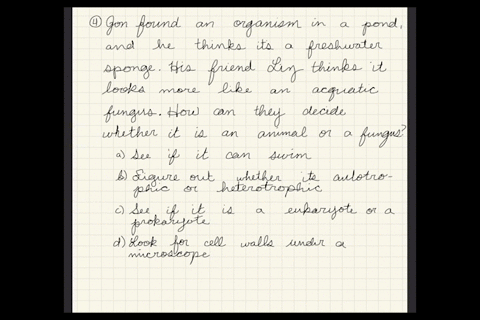 ④ Jon found an organism in a pond,
and he thinks its a freshwater
sponge. His friend Liz thinks it
looks more like an acquatic
fungus. How can they decide
whether it is an animal or a fungus?
a) See if it can swim
b) Figure out whether its autotro-
phic or heterotrophic
c) See if it is a eukaryote or a
prokaryote
d) Look for cell walls under a
microscope